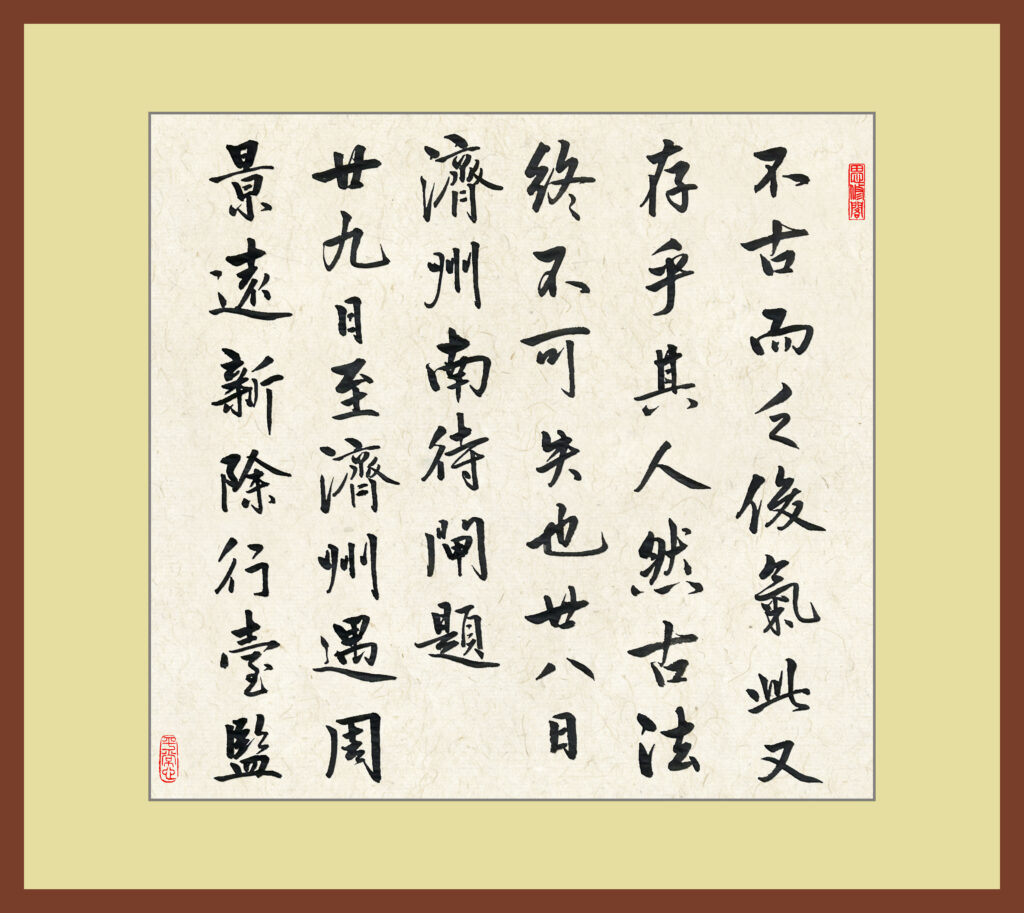 不古而乏俊氣此又
存乎其人然古法
終不可失也廿八日
濟州南待閘題
廿九日至濟州遇周
景遠新除行臺監
平常心